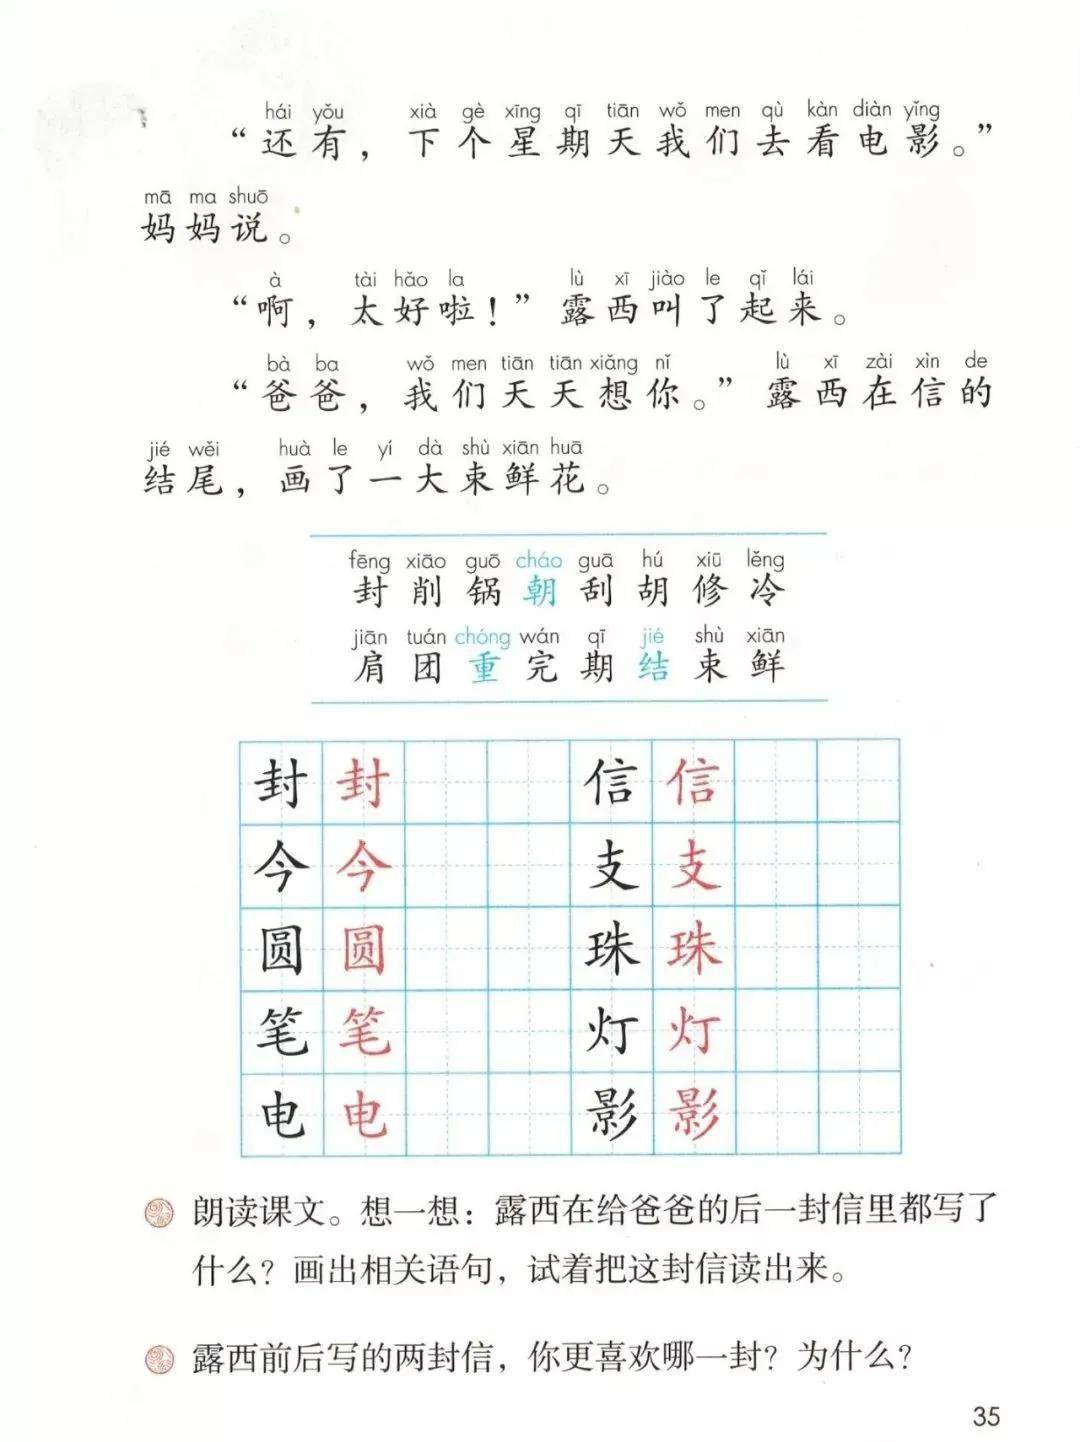 hái yǒu xià gè xīng qī tiān wǒ men qù kàn diàn yǐng
“还有，下个星期天我们去看电影。”
mā ma shuō
妈妈说。
à tài hǎo la lù xī jiào le qǐ lái
“啊，太好啦！”露西叫了起来。
bà ba wǒ men tiān tiān xiǎng nǐ lù xī zài xìn de
“爸爸，我们天天想你。”露西在信的
jié wěi huà le yí dà shù xiān huā
结尾，画了一大束鲜花。
fēng xiāo guō cháo guā hú xiū lěng
封 削 锅 朝 刮 胡 修 冷
jiān tuán chóng wán qī jié shù xiān
肩 团 重 完 期 结 束 鲜
封 封 信 信
今 今 支 支
圆 圆 珠 珠
笔 笔 灯 灯
电 电 影 影
朗读课文。想一想：露西在给爸爸的后一封信里都写了
什么？画出相关语句，试着把这封信读出来。
露西前后写的两封信，你更喜欢哪一封？为什么？
35